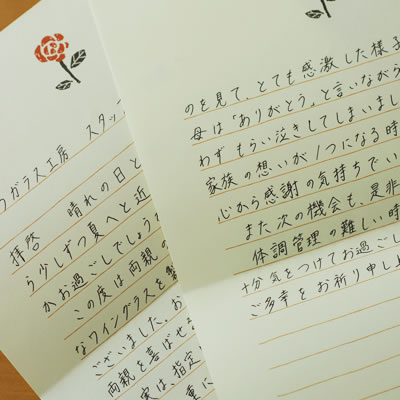 ガラス工房 スタッ
拝啓 晴れの日と
ら少しずつ夏へと近
かお過ごしでしょう
この度は両親の
なワイングラスを製
ございました。お
両親を喜ばせ
実は、指定
重に
のを見て、とても感激した様子
母は「ありがとう」と言いながら
わずもらい泣きしてしまいまし
家族の想いが1つになる時
心から感謝の気持ちでい
また次の機会も、是非
体調管理の難しい時
十分気をつけてお過ごし
ご多幸をお祈り申し上